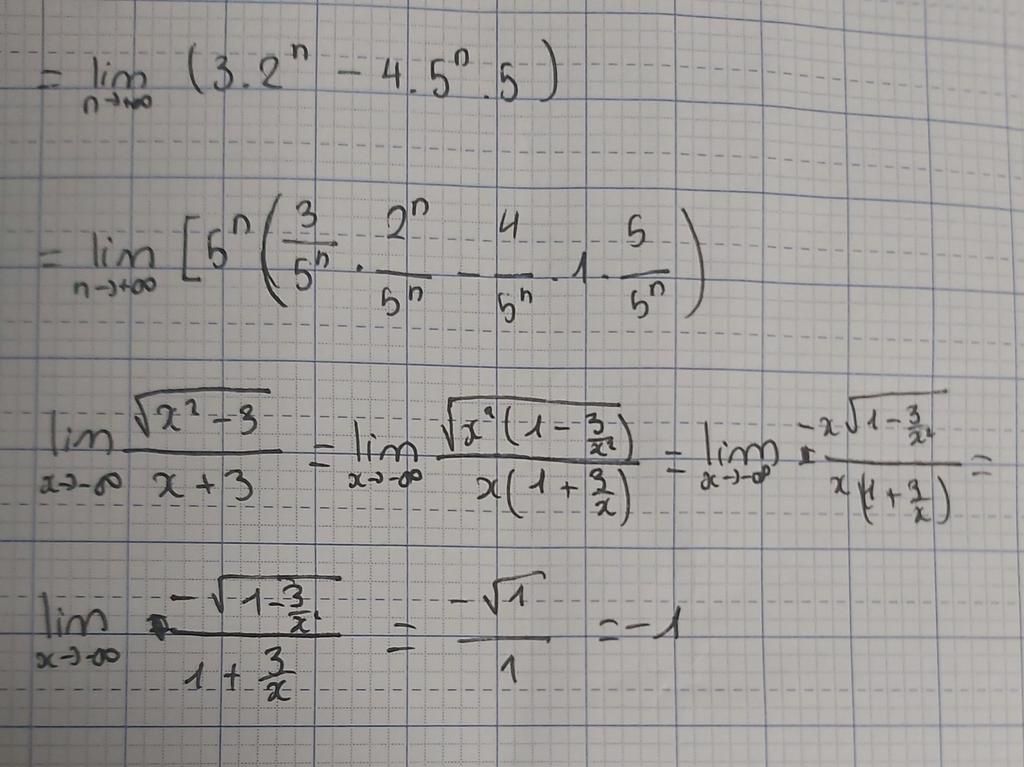 = lim n→+∞ (3.2ⁿ − 4.5ⁿ.5)
= lim n→+∞ [5ⁿ(3/5ⁿ . 2ⁿ/5ⁿ − 4/5ⁿ . 1 . 5/5ⁿ)
lim x→-∞ √(x² − 3)/(x + 3) = lim x→-∞ √(x²(1 − 3/x²))/(x(1 + 3/x)) = lim x→-∞ −x√(1 − 3/x²)/(x(1 + 3/x)) =
lim x→-∞ −√(1 − 3/x²)/(1 + 3/x) = −√1/1 = −1